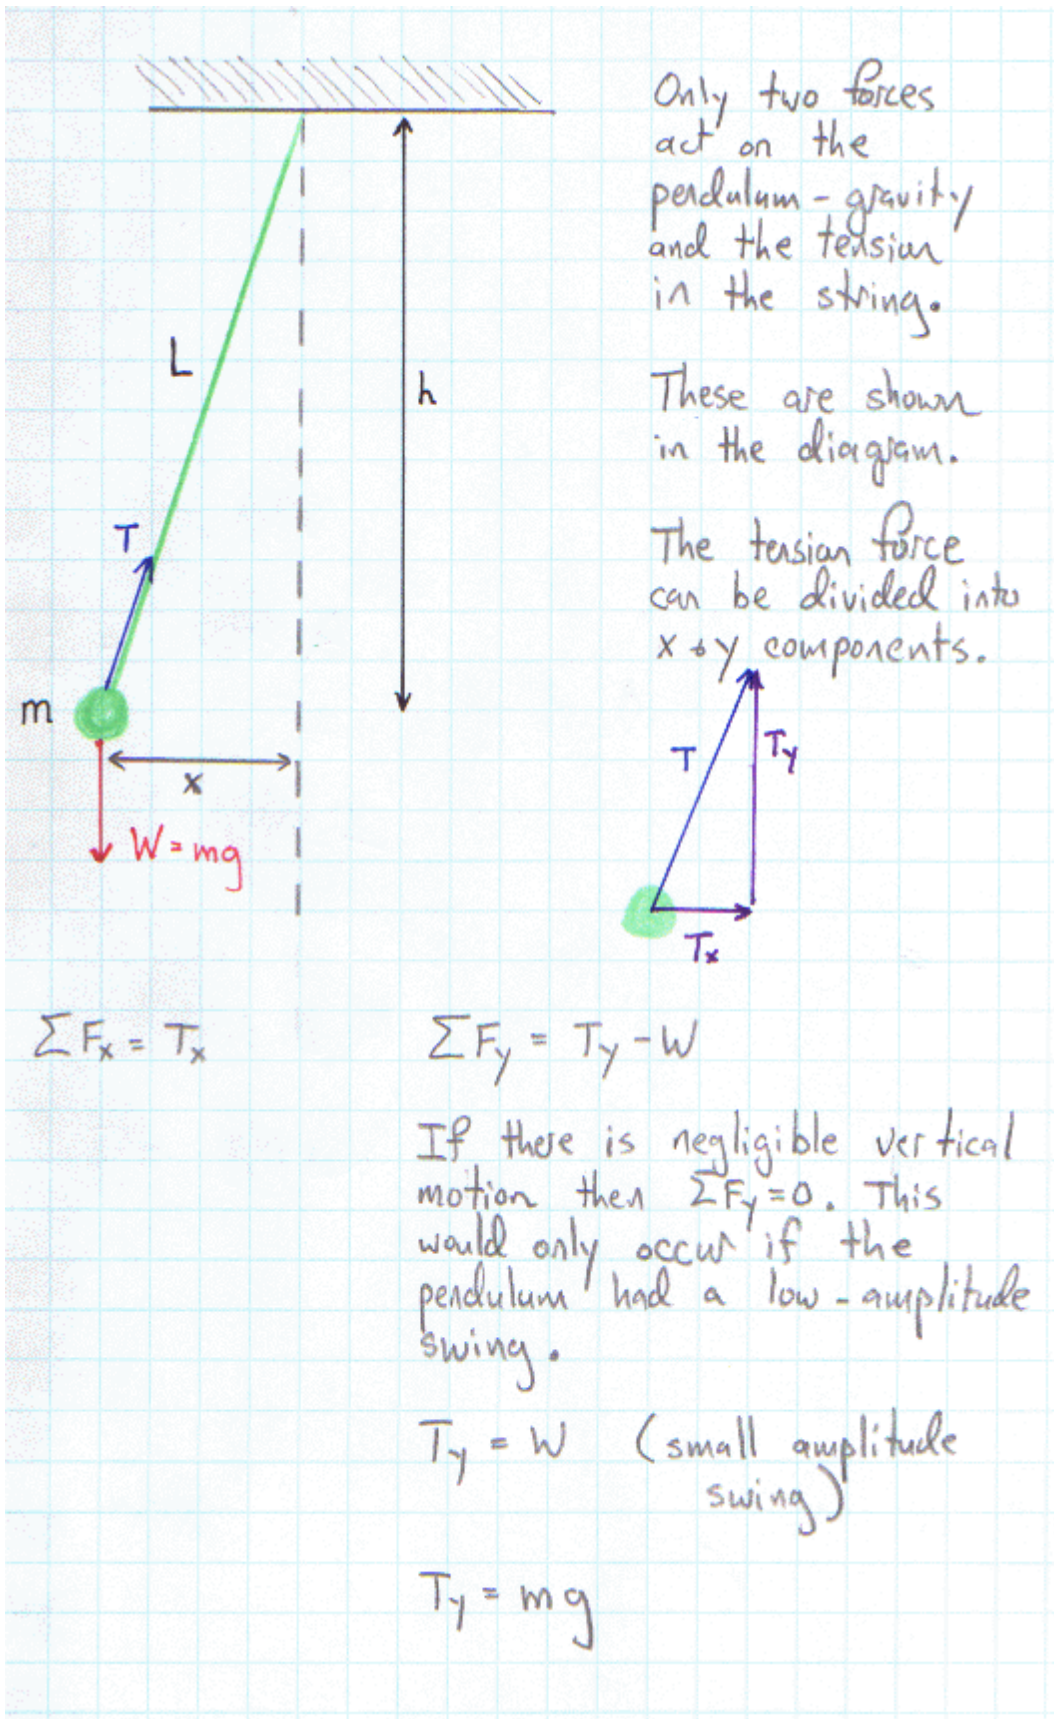 Only two forces
act on the
pendulum - gravity
and the tension
in the string.
These are shown
in the diagram.
The tension force
can be divided into
x & y components.
L
h
T
m
x
W = mg
T
Ty
Tx
ΣFx = Tx
ΣFy = Ty - W
If there is negligible vertical
motion then ΣFy = 0. This
would only occur if the
pendulum had a low-amplitude
swing.
Ty = W (small amplitude
swing)
Ty = mg